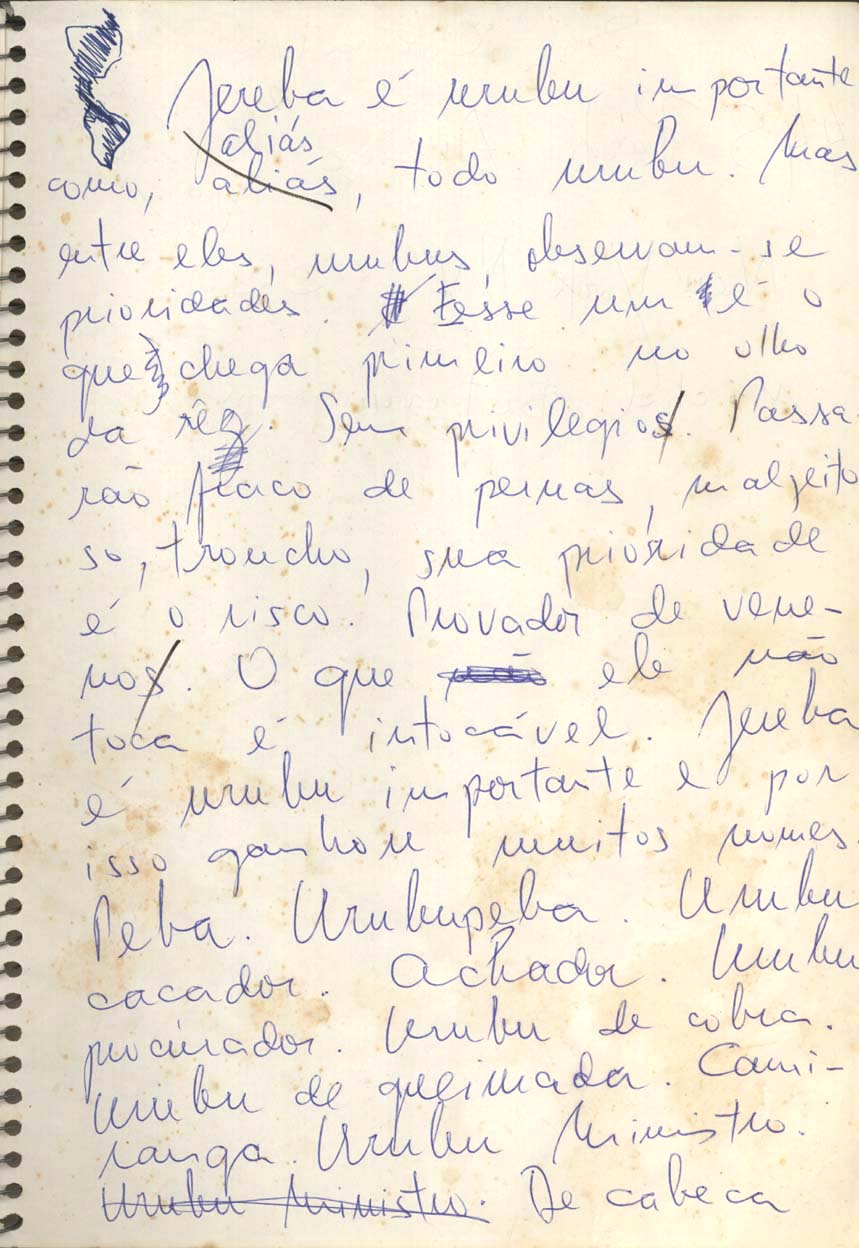 Jereba é urubu importante
aliás
como, aliás, todo urubu. Mas
entre eles, urubus, observam-se
prioridades. Esse um é o
que chega primeiro no olho
da rêz. Sem privilegios. Passa-
rão fraco de pernas, maljeito
so, troncho, sua prioridade
é o risco. Provador de vene-
nos. O que ele não
toca é intocável. Jereba
é urubu importante e por
isso ganhou muitos nomes.
Peba. Urubupeba. Urubu
cacador. Achador. Urubu
procurador. Urubu de cobra.
Urubu de queimada. Cami-
ranga. Urubu Ministro.
Urubu Ministro. De cabeca